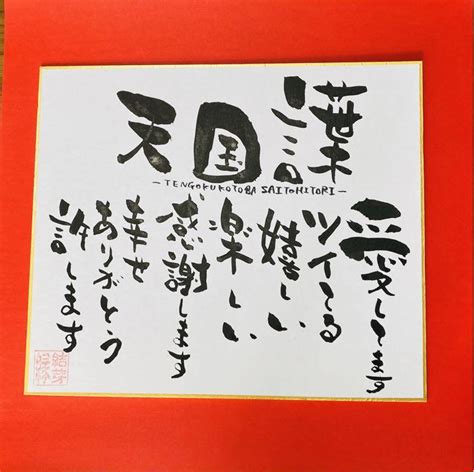 天国言葉
-TENGOKUKOTOBA SAITOHITORI-
愛してます
ツイてる
嬉しい
楽しい
感謝します
幸せ
ありがとう
許します